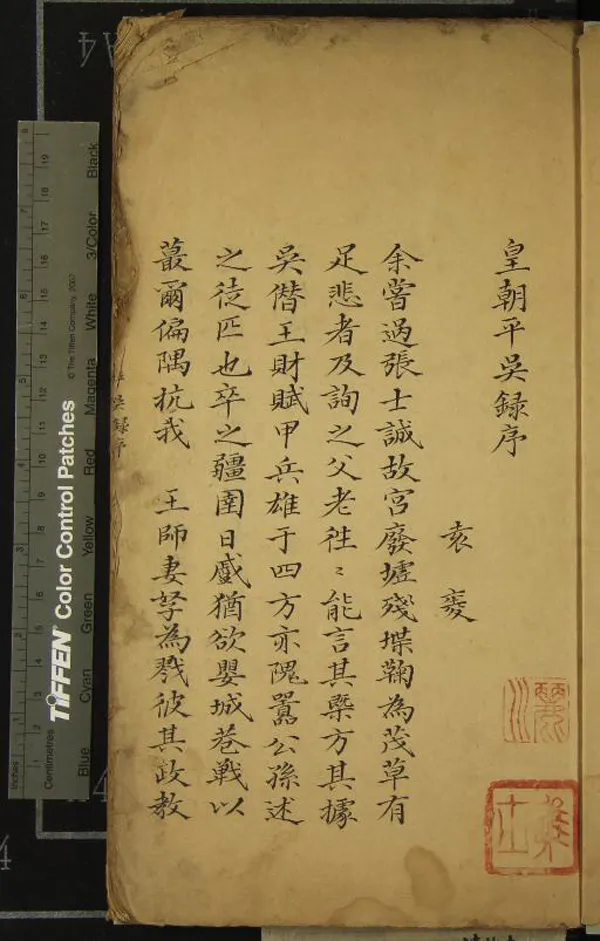 皇朝平吳錄序
袁袠
余嘗過張士誠故宮廢墟殘堞鞠為茂草有
足悲者及詢之父老徃〻能言其槩方其據
吳僭王財賦甲兵雄于四方亦隗囂公孫述
之徒匹也卒之疆圉日蹙猶欲嬰城巷戰以
蕞爾偏隅抗我 王師妻孥為戮彼其政教
平吳錄序
Inches
Centimetres
TIFFEN® Color Control Patches
© The Tiffen Company, 2007
Blue
Cyan
Green
Yellow
Red
Magenta
White
3/Color
Black